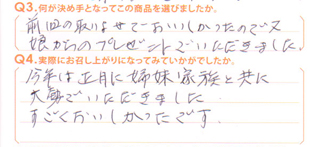 Q3.何が決め手となってこの商品を選びましたか。
前回の取りよせでおいしかったので又
娘からのプレゼントでいただきました。
Q4.実際にお召し上がりになってみていかがでしたか。
今年は正月に姉妹家族と共に
大勢でいただきました
すごくおいしかったです